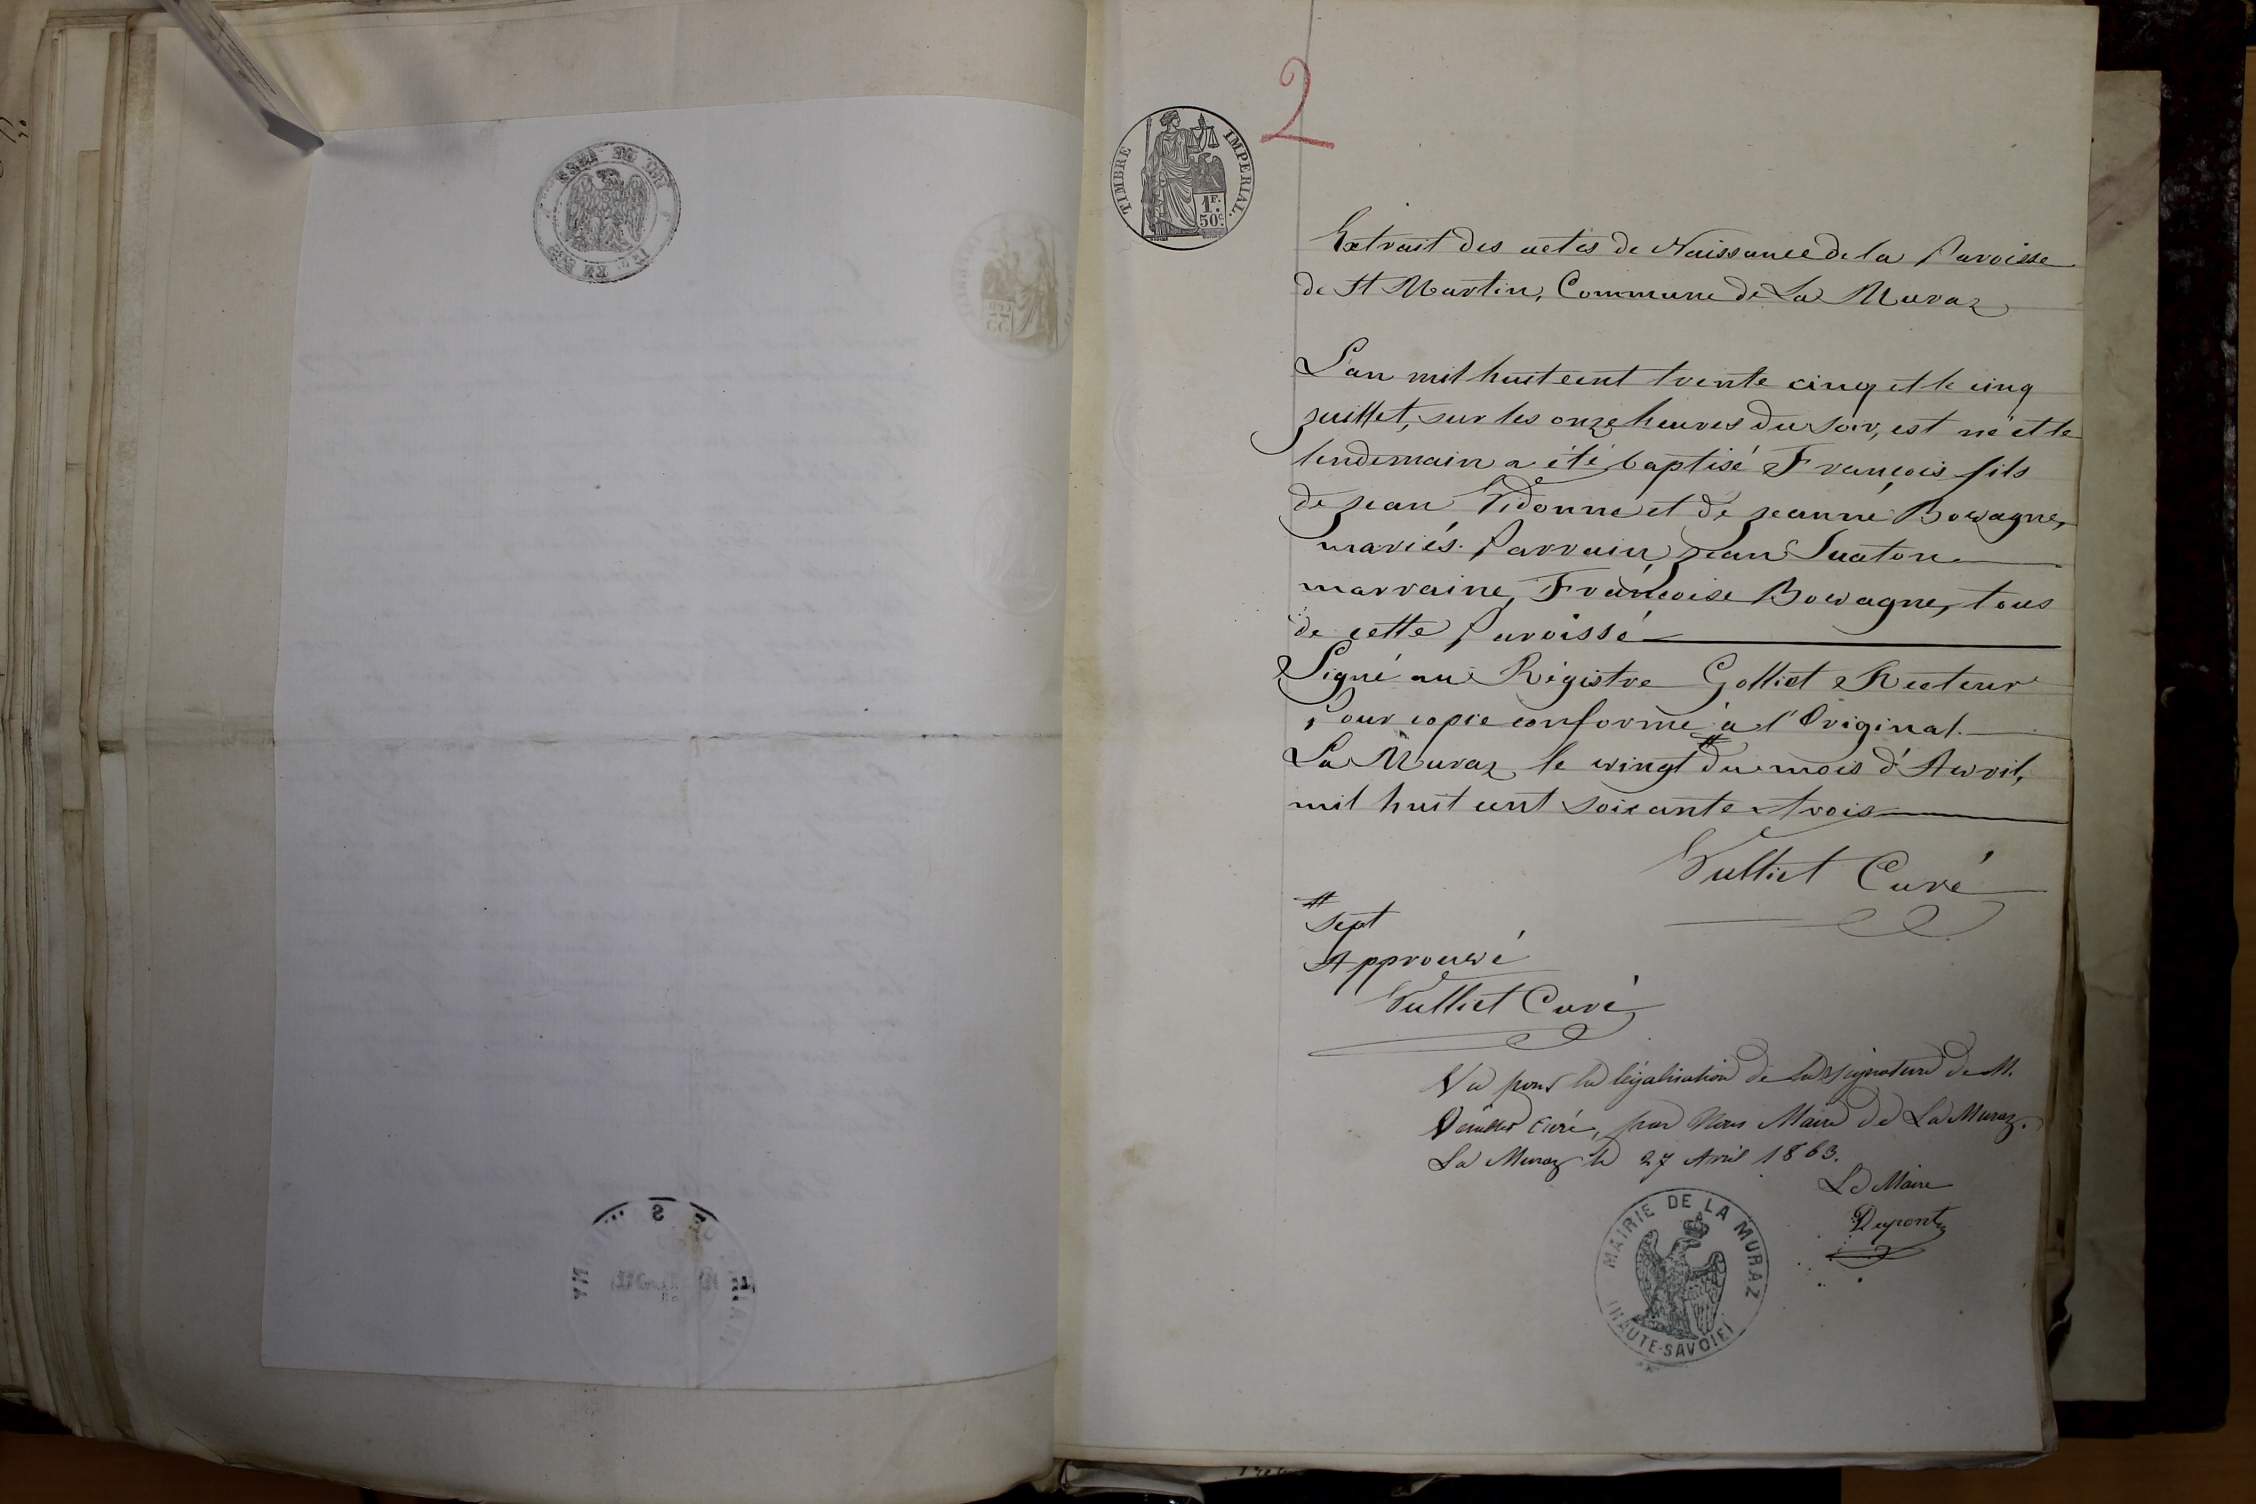 2
TIMBRE IMPERIAL.
1F.
50c
Extrait des actes de Naissance de la Paroisse
de St Martin, Commune de La Muraz
L'an mil huit cent trente cinq et le cinq
juillet, sur les onze heures du soir, est né et le
lendemain a été baptisé François fils
de jean Vidonne et de jeanne Bovagne,
mariés. Parrain, jean Suaton
marraine, Françoise Bovagne, tous
de cette Paroisse
Signé au Régistre Golliet Recteur
Pour copie conforme à l'Original.
La Muraz le vingt # du mois d'Avril,
mil huit cent soixante trois
Vulliet Curé
# sept
Approuvé
Vulliet Curé
Vu pour la légalisation de la signature de M.
curé, par Nous Maire de La Muraz.
La Muraz le 27 Avril 1863.
Le Maire
Dupont
MAIRIE DE LA MURAZ
(HAUTE-SAVOIE)